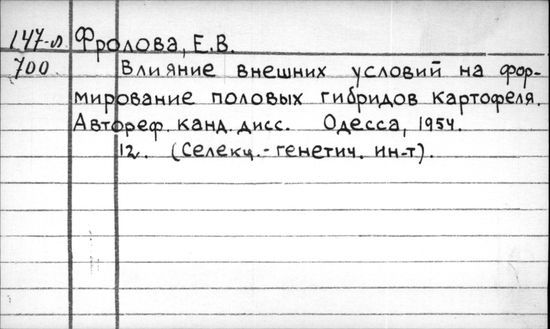 147-л Фролова, Е.В.
700 Влияние внешних условий на фор-
мирование половых гибридов картофеля.
Автореф. канд. дисс. Одесса, 1954.
12. (Селекц.-генетич. ин-т).